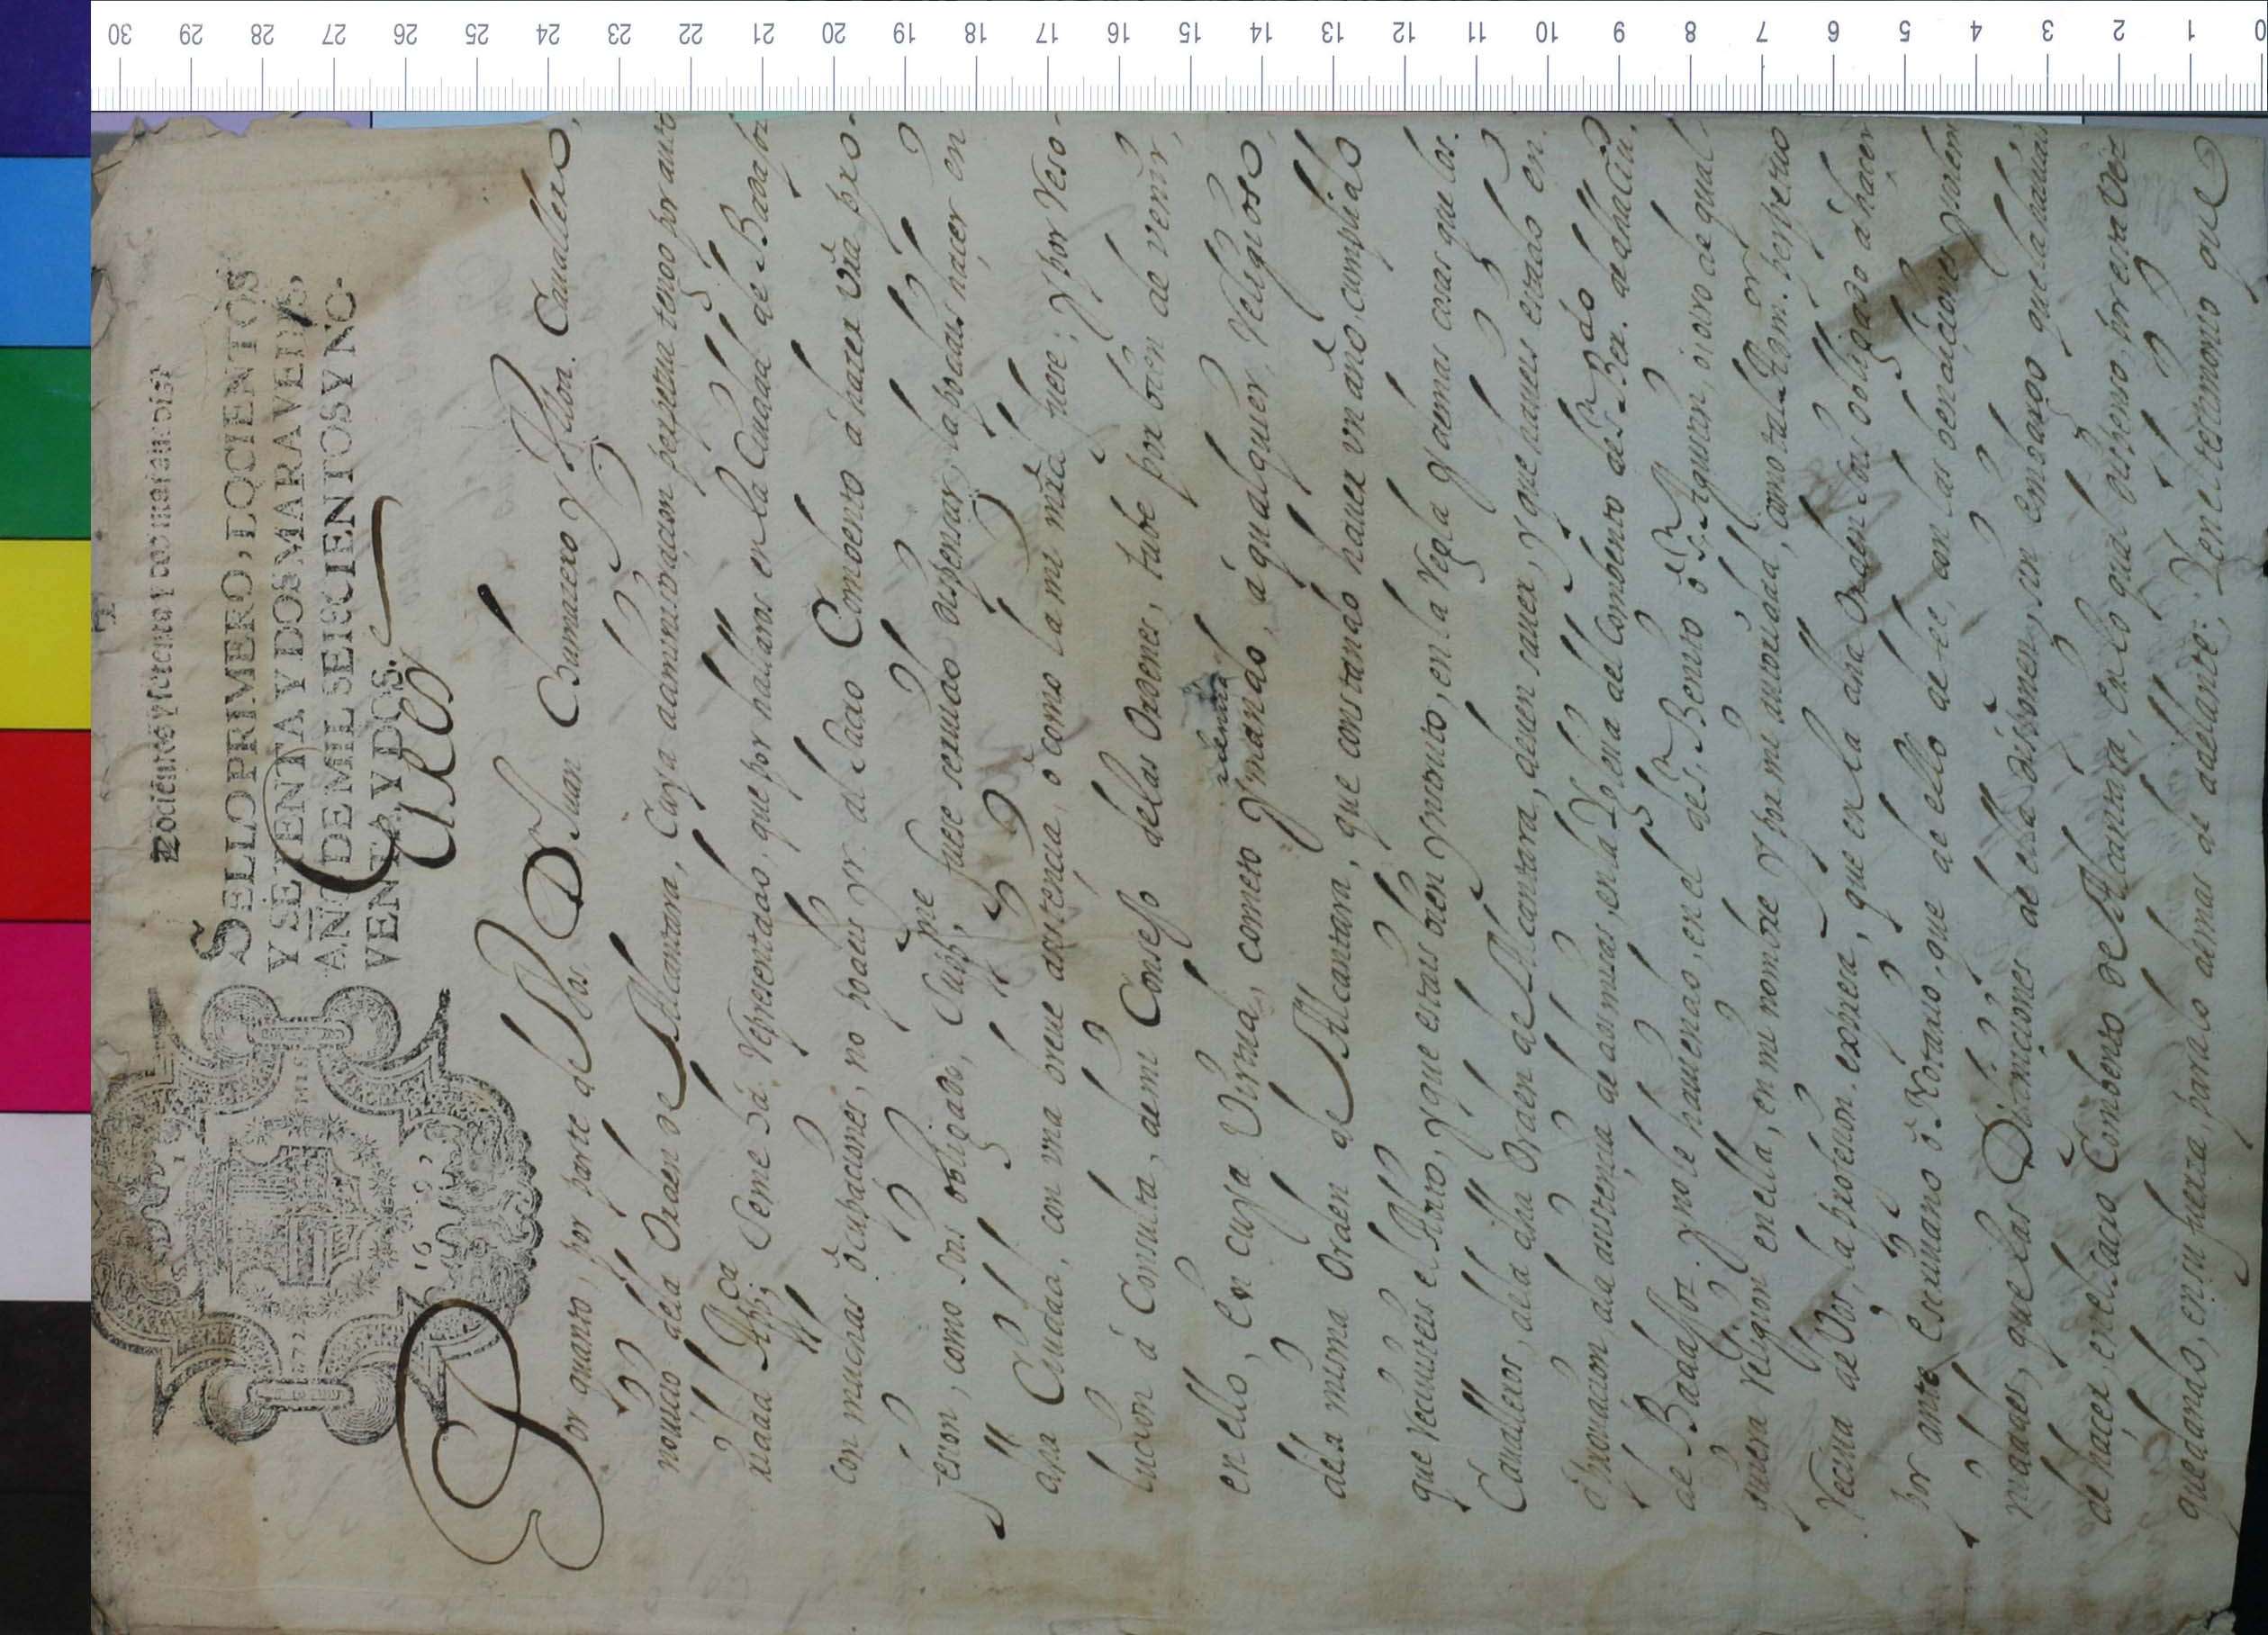 Docientos y setenta y dos marauedis.
SELLO PRIMERO, DOCIENTOS
Y SETENTA Y DOS MARAVEDIS,
AÑO DE MIL SEISCIENTOS Y NO
VENTA Y DOS.
1692
El Rey
Por quanto, por parte de Vos, D. Juan Chumazero y Ulloa. Cauallero,
nouicio dela Orden de Alcantara, cuya administracion perpetua tengo por auto
ridad App.ca Seme há Representado, que por hallaros en la Ciudad de Badajoz
con muchas ocupaciones, no podeis yr al Sacro Comvento á hazer vra pro-
fession, como sois obligado, Supp.me fuese seruido dispensar, la podais hacer en
dha Ciudad, con vna breue asistencia, o como la mi mrd fuere; Y por Reso-
lucion à Consulta, de mi Consejo delas Ordenes, tube por bien de venir,
en ello, En cuya Virtud, cometo y mando, á qualquier, Religioso,
dela misma Orden de Alcantara, que constando hauer vn año, cumplido
que Receuisteis el Auito, y que estais bien ynstructo, en la Regla y demas cosas que los
Caualleros, dela dha Orden de Alcantara, deuen sauer, y que haueis estado en
aprouacion ala asistencia de dos misas, en la Yglesia del Comvento de S.r Ber.do dela dha Ciu.d
de Badajoz. Y no le hauiendo, en el de S.n Benito ó S.n Agustin, ó otro de qual-
quiera Religion en ella, en mi nombre y por mi autoridad, como tal Adm.or perpetuo
Reciua de Vos, la profession. expresa, que en la dha Orden sois obligado a hacer
por ante escriuano ô Notario, que de ello de fee, con las bendiciones y solem
nidades, que las Difiniciones de ella disponen, sin embargo que la hauiais
de hacer, en el Sacro Combento de Alcantara, en lo qual dispenso por esta vez
quedando, en su fuerza, para lo demas de adelante; Y en el testimonio que